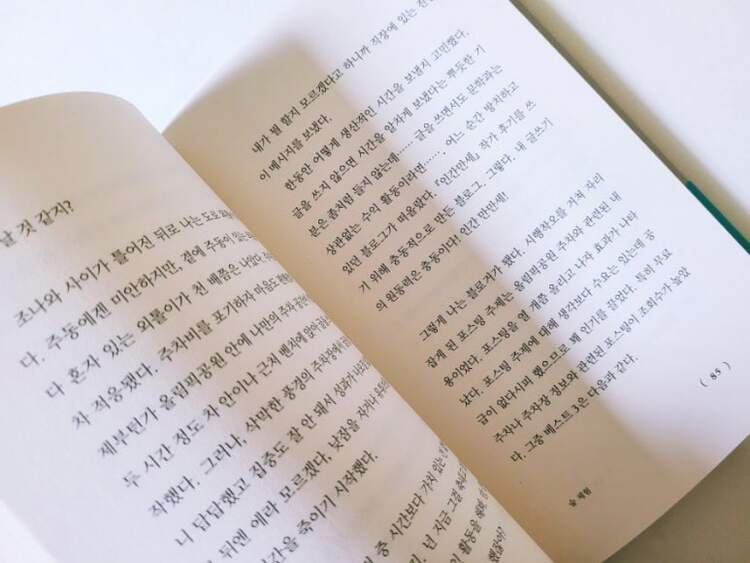 날 것 같지?
조나와 사이가 틀어진 뒤로 나는 도로
다. 주동에겐 미안하지만, 곁에 주동이 있는
다 혼자 있는 외톨이가 천 배쯤은 나았다.
차 적응됐다. 주차비를 포기하자 마음도
제부턴가 올림픽공원 안에 나만의 주차 공간
두 시간 정도 차 안이나 근처 벤치에 앉아
작했다. 그러나, 삭막한 풍경의 주차장에
니 답답했고 집중도 잘 안 돼서 성과가 나
뒤엔 에라 모르겠다, 낮잠을 자거나
시간을 죽이기 시작했다.
중 시간보다 가치 있는
넌 지금 그걸
활동을
했잖아?
내가 뭘 할지 모르겠다고 하니까 직장에 있는
이 메시지를 보냈다.
한동안 어떻게 생산적인 시간을 보낼지 고민했다.
글을 쓰지 않으면 시간을 알차게 보냈다는 뿌듯한 기
분은 좀처럼 들지 않는데…… 글을 쓰면서도 문학과는
상관없는 수익 활동이라면……. 어느 순간 방치하고
있던 블로그가 떠올랐다. 『인간만세』 작가 후기를 쓰
기 위해 충동적으로 만든 블로그. 그렇다. 내 글쓰기
의 원동력은 충동이다! 인간 만만세!
그렇게 나는 블로거가 됐다. 시행착오를 거쳐 자리
잡게 된 포스팅 주제는 올림픽공원 주차와 관련된 내
용이었다. 포스팅을 열 개쯤 올리고 나자 효과가 나타
났다. 포스팅 주제에 대해 생각보다 수요는 있는데 공
급이 없다시피 했으므로 꽤 인기를 끌었다. 특히 무료
주차나 주차장 정보와 관련된 포스팅이 조회수가 높았
다. 그중 베스트 3은 다음과 같다.
( 85 )